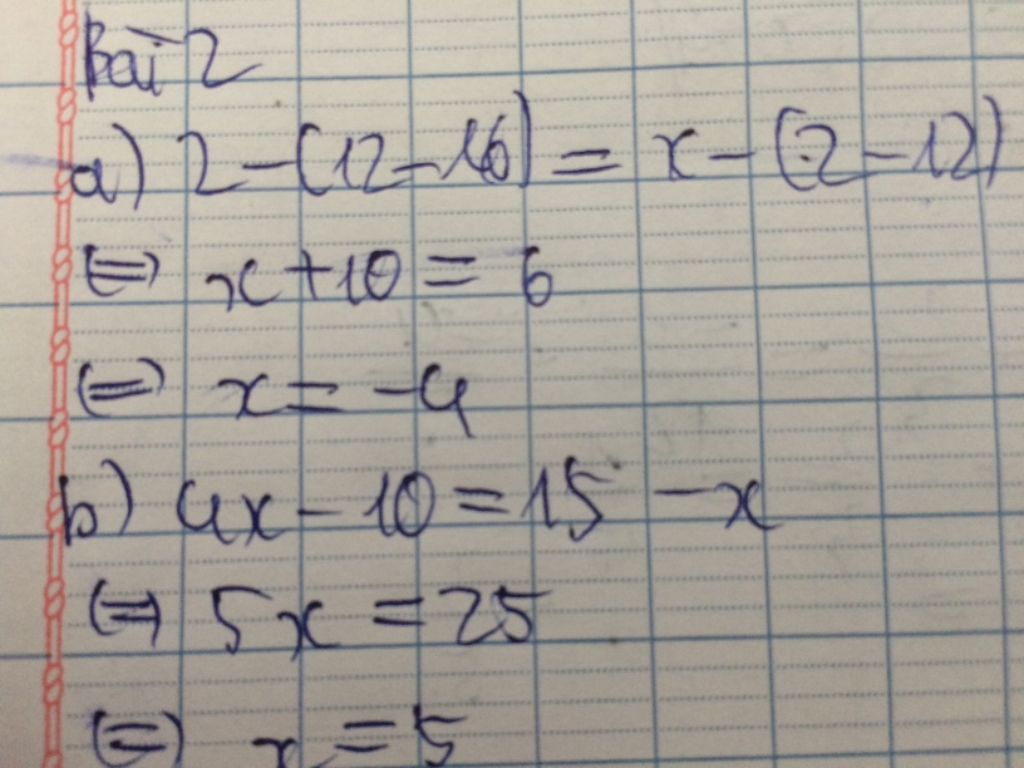 Bài 2
a) 2 - (12 - 16) = x - (2 - 12)
⇔ x + 10 = 6
⇔ x = -4
b) 4x - 10 = 15 - x
⇔ 5x = 25
⇔ x = 5